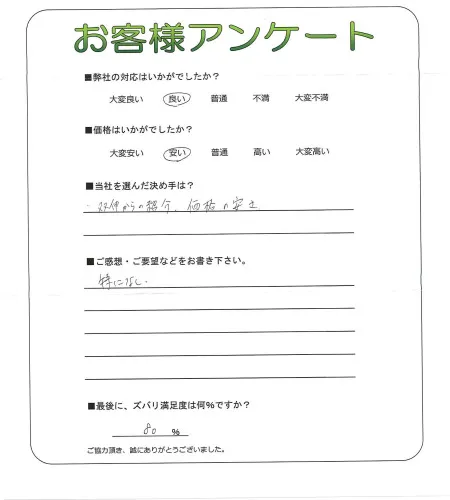 お客様アンケート
■弊社の対応はいかがでしたか?
大変良い 良い 普通 不満 大変不満
■価格はいかがでしたか?
大変安い 安い 普通 高い 大変高い
■当社を選んだ決め手は?
からの紹介、価格の安さ
■ご感想・ご要望などをお書き下さい。
特になし.
■最後に、ズバリ満足度は何%ですか?
80 %
ご協力頂き、誠にありがとうございました。